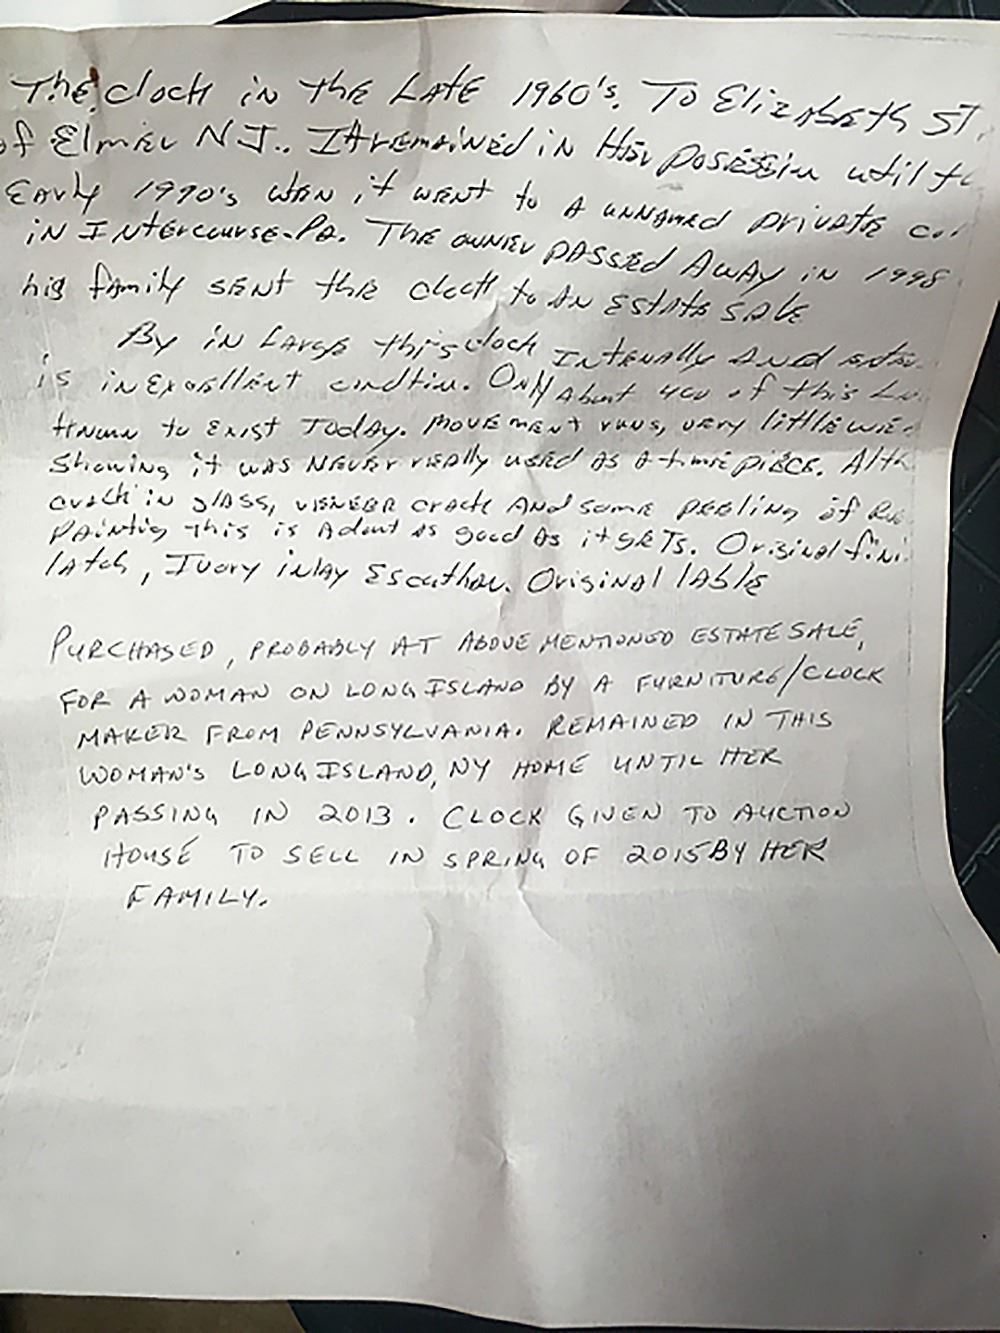 The clock in the Late 1960's. To Elizabeth ST.
of Elmer N.J.. It remained in Her posession util
Early 1990's whn it went to A unnamed private
in Intercourse-Pa. The owner passed Away in 1998
his family sent the clock to An Estate sale
By in Large this clock Internally And
is in Excellent condtin. Only About 400 of this
known to Exist Today. Movement runs, very little
Showing it was Never really used as a time piece.
crack in glass, veneer crack And some peeling of
painting this is About as good as it gets. Original
latch, Ivory inlay Escuthon. Original lable
PURCHASED, PROBABLY AT ABOVE MENTIONED ESTATE SALE,
FOR A WOMAN ON LONG ISLAND BY A FURNITURE/CLOCK
MAKER FROM PENNSYLVANIA. REMAINED IN THIS
WOMAN'S LONG ISLAND, NY HOME UNTIL HER
PASSING IN 2013. CLOCK GIVEN TO AUCTION
HOUSE TO SELL IN SPRING OF 2015 BY HER
FAMILY.